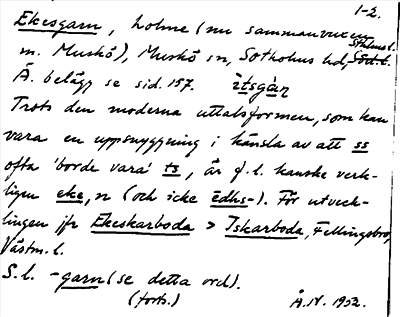 1-2.
Ekesgarn, holme (nu sammanvuxen
m. Muskö), Muskö sn, Sotholms hd, Sthlms l.
Ä. belägg se sid. 157. ìtsgàn
Trots den moderna uttalsformen, som kan
vara en uppsnyggning i känsla av att ss
ofta 'borde vara' ts, är f.l. kanske verk-
ligen eke, n (och icke ēdhs-). För utveck-
lingen jfr Ekeskarboda > Iskarboda, Fellingsbro,
Västm. l.
S.l. -garn (se detta ord).
(forts.) Å.N. 1952.